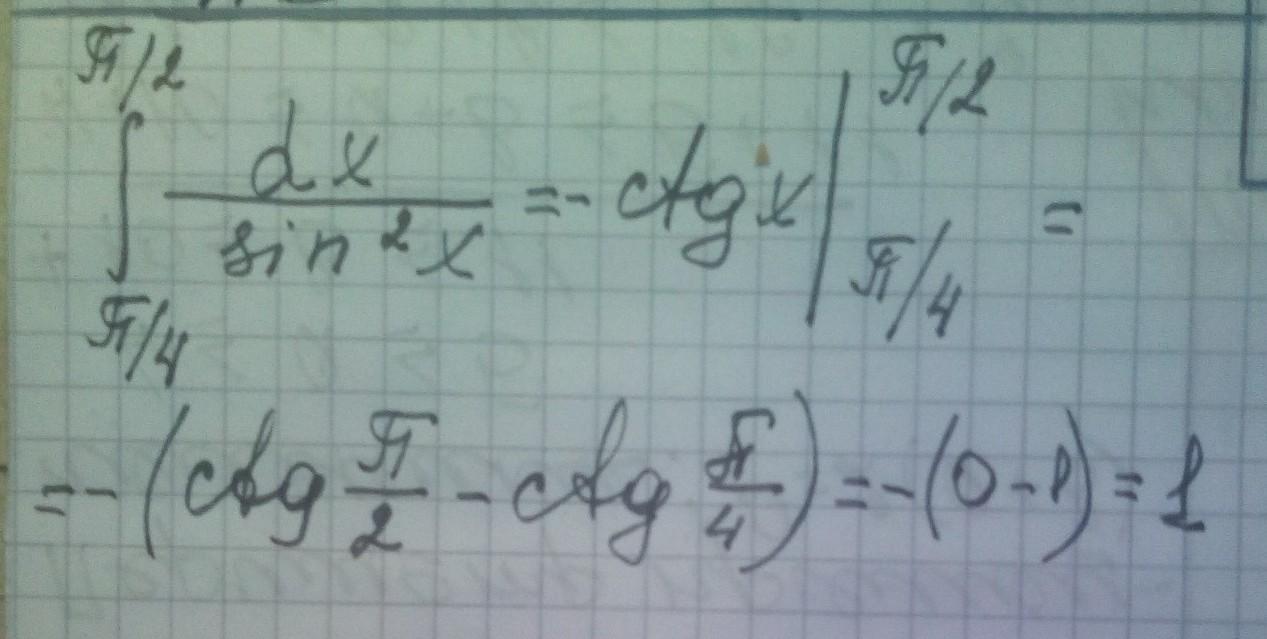 ∫_{π/4}^{π/2} dx / sin²x = - ctg x |_{π/4}^{π/2} =
= - (ctg π/2 - ctg π/4) = - (0 - 1) = 1